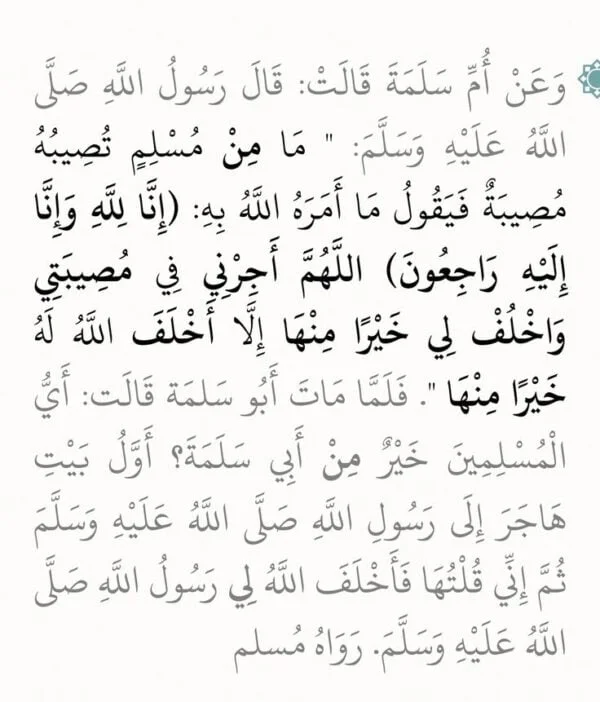 وَعَنْ أُمِّ سَلَمَةَ قَالَتْ: قَالَ رَسُولُ اللَّهِ صَلَّى
اللَّهُ عَلَيْهِ وَسَلَّمَ: " مَا مِنْ مُسْلِمٍ تُصِيبُهُ
مُصِيبَةٌ فَيَقُولُ مَا أَمَرَهُ اللَّهُ بِهِ: (إِنَّا لِلَّهِ وَإِنَّا
إِلَيْهِ رَاجِعُونَ) اللَّهُمَّ أَجِرْنِي فِي مُصِيبَتِي
وَاخْلُفْ لِي خَيْرًا مِنْهَا إِلَّا أَخْلَفَ اللَّهُ لَهُ
خَيْرًا مِنْهَا ". فَلَمَّا مَاتَ أَبُو سَلمَة قَالَت: أَيُّ
الْمُسْلِمِينَ خَيْرٌ مِنْ أَبِي سَلَمَةَ؟ أَوَّلُ بَيْتِ
هَاجَرَ إِلَى رَسُولِ اللَّهِ صَلَّى اللَّهُ عَلَيْهِ وَسَلَّمَ
ثُمَّ إِنِّي قُلْتُهَا فَأَخْلَفَ اللَّهُ لِي رَسُولُ اللَّهِ صَلَّى
اللَّهُ عَلَيْهِ وَسَلَّمَ. رَوَاهُ مُسلم